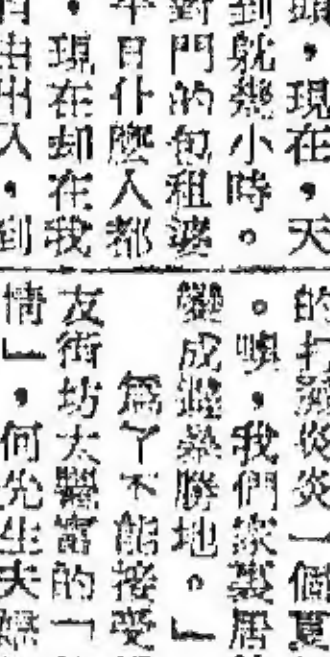 頭，現在，天
到就幾小時。
對門的包租婆
平日什麼人都
，現在却在我
自由出入，到
的打發炎炎一個夏
。噢，我們家裏居
變成避暑勝地。」
為了不能接受
友街坊太豐富的「
情」，何先生夫婦